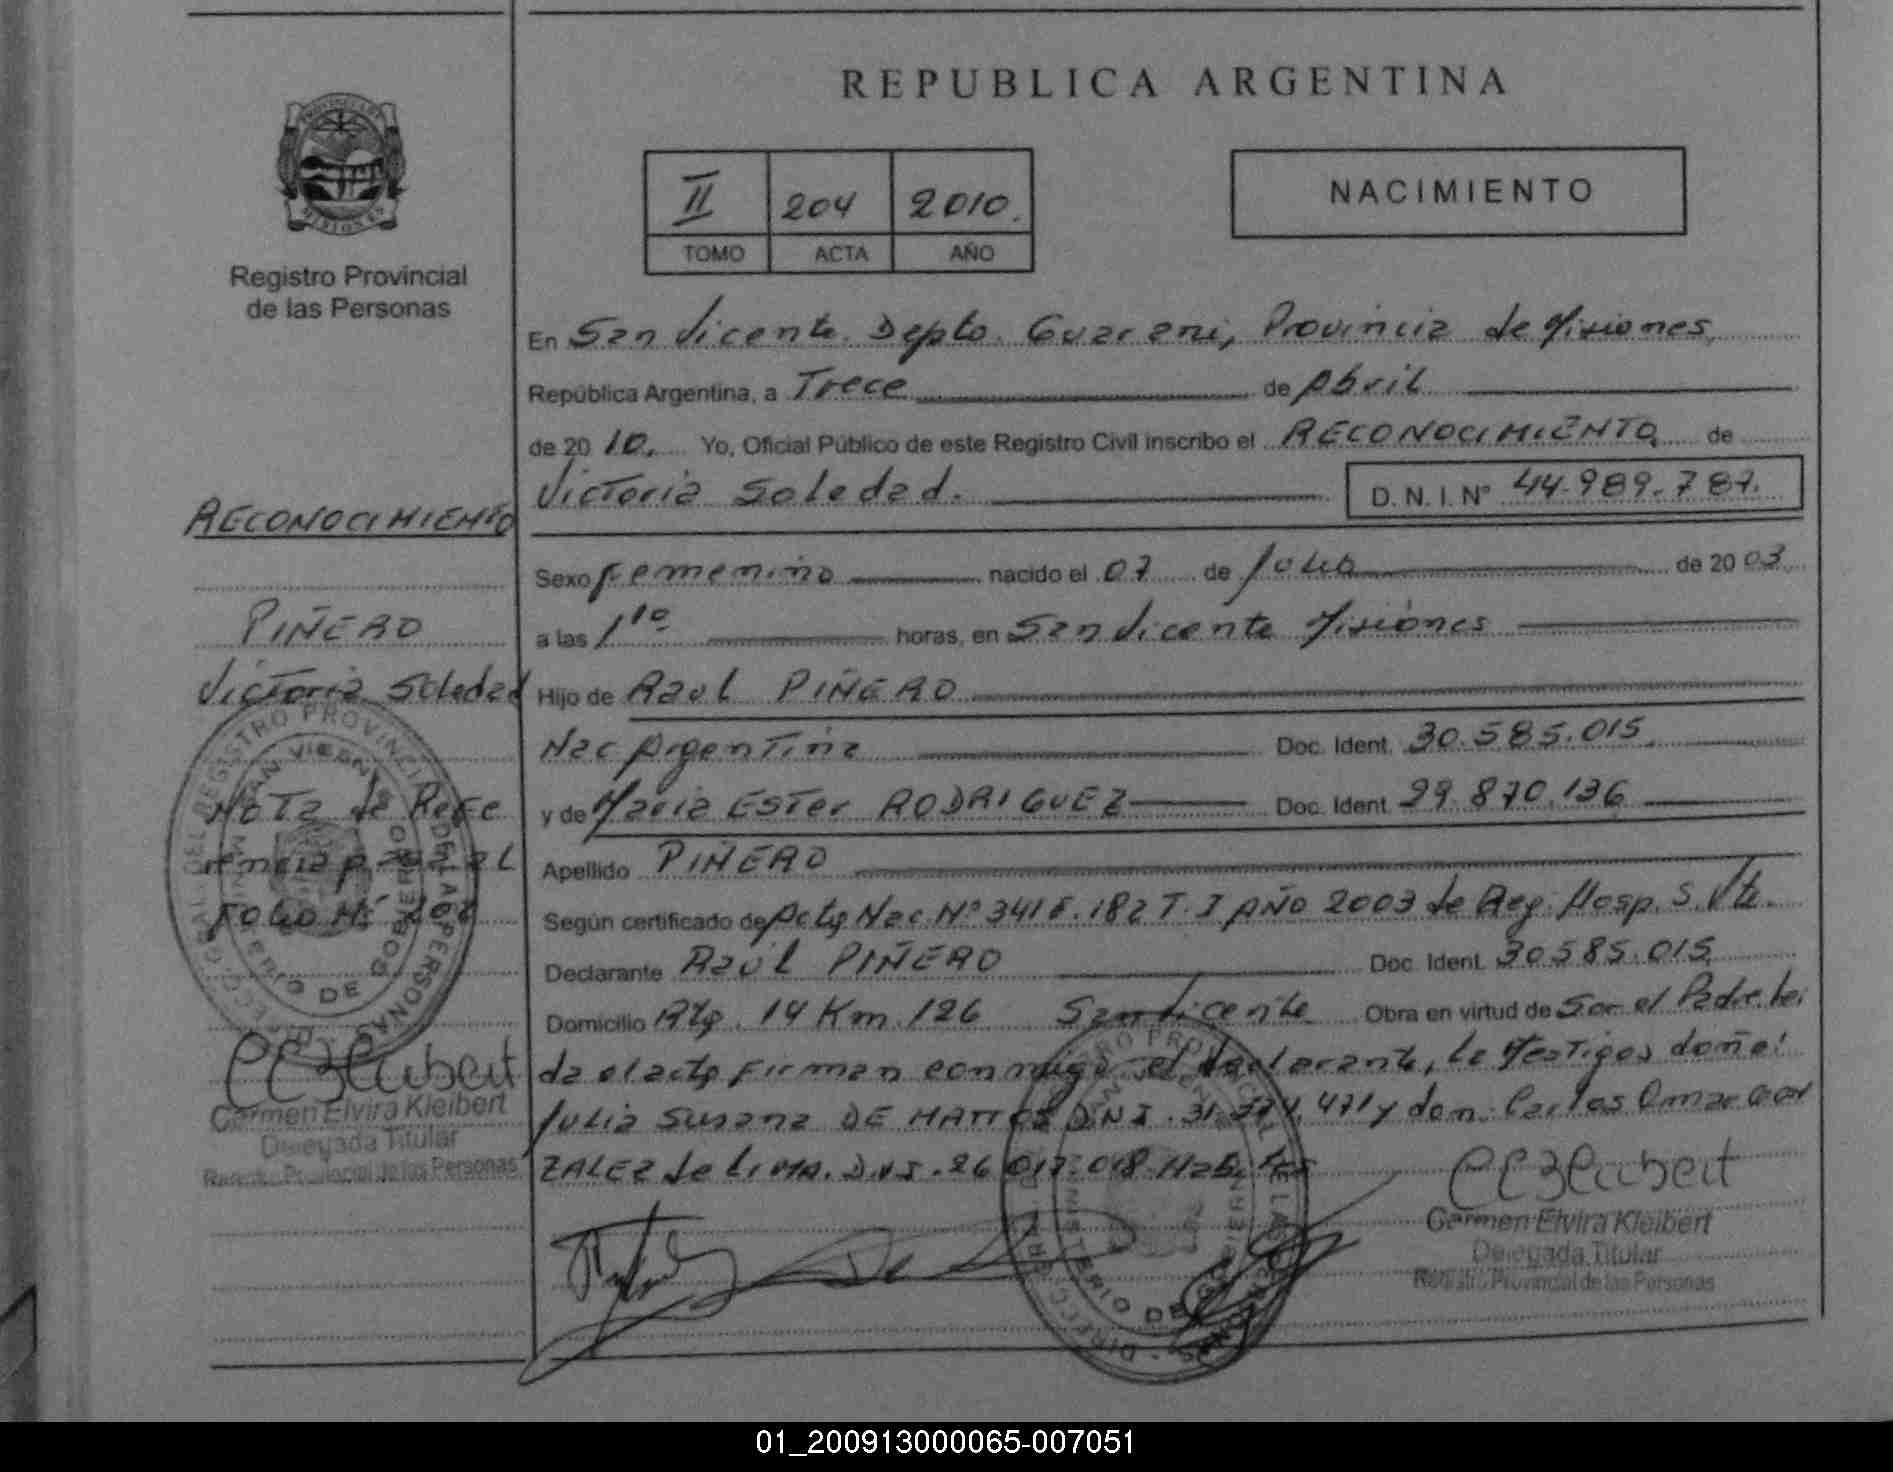 REPUBLICA ARGENTINA
II 204 2010.
TOMO ACTA AÑO
NACIMIENTO
PROVINCIA DE
MISIONES
Registro Provincial
de las Personas
En San Vicente. Depto. Guarani, Provincia de Misiones,
República Argentina, a Trece de Abril
de 2010. Yo, Oficial Público de este Registro Civil inscribo el RECONOCIMIENTO de
Victoria Soledad. D.N.I. Nº 44.989.787.
Sexo femenino nacido el 07 de Julio de 2003
a las horas, en San Vicente Misiones
Hijo de Raul PIÑERO
Nac Argentina Doc. Ident. 30.585.015
y de Maria ESTer RODRIGUEZ Doc. Ident. 29.870.136
Apellido PIÑERO
Según certificado de Acta Nac Nº 341 F. 182 T. I AÑO 2003 de Reg. Hosp. S. Vte.
Declarante Raúl PIÑERO Doc. Ident. 30.585.015
Domicilio Rta. 14 Km 126 San Vicente Obra en virtud de Ser el Padre lei
da el acta firman conmigo el declarante, lo testigos doña:
Julia Susana DE MATTOS D.N.I. 31. .471 y don: Carlos Omar GON
ZALEZ de LIMA. D.N.I. 26.017.018 Habiles
Carmen Elvira Kleibert
Delegada Titular
Registro Provincial de las Personas
RECONOCIMIENTO
PIÑERO
Victoria Soledad
NOTA de Refe
rencia
FOLIO Nº
Carmen Elvira Kleibert
Delegada Titular
Registro Provincial de las Personas
01_200913000065-007051